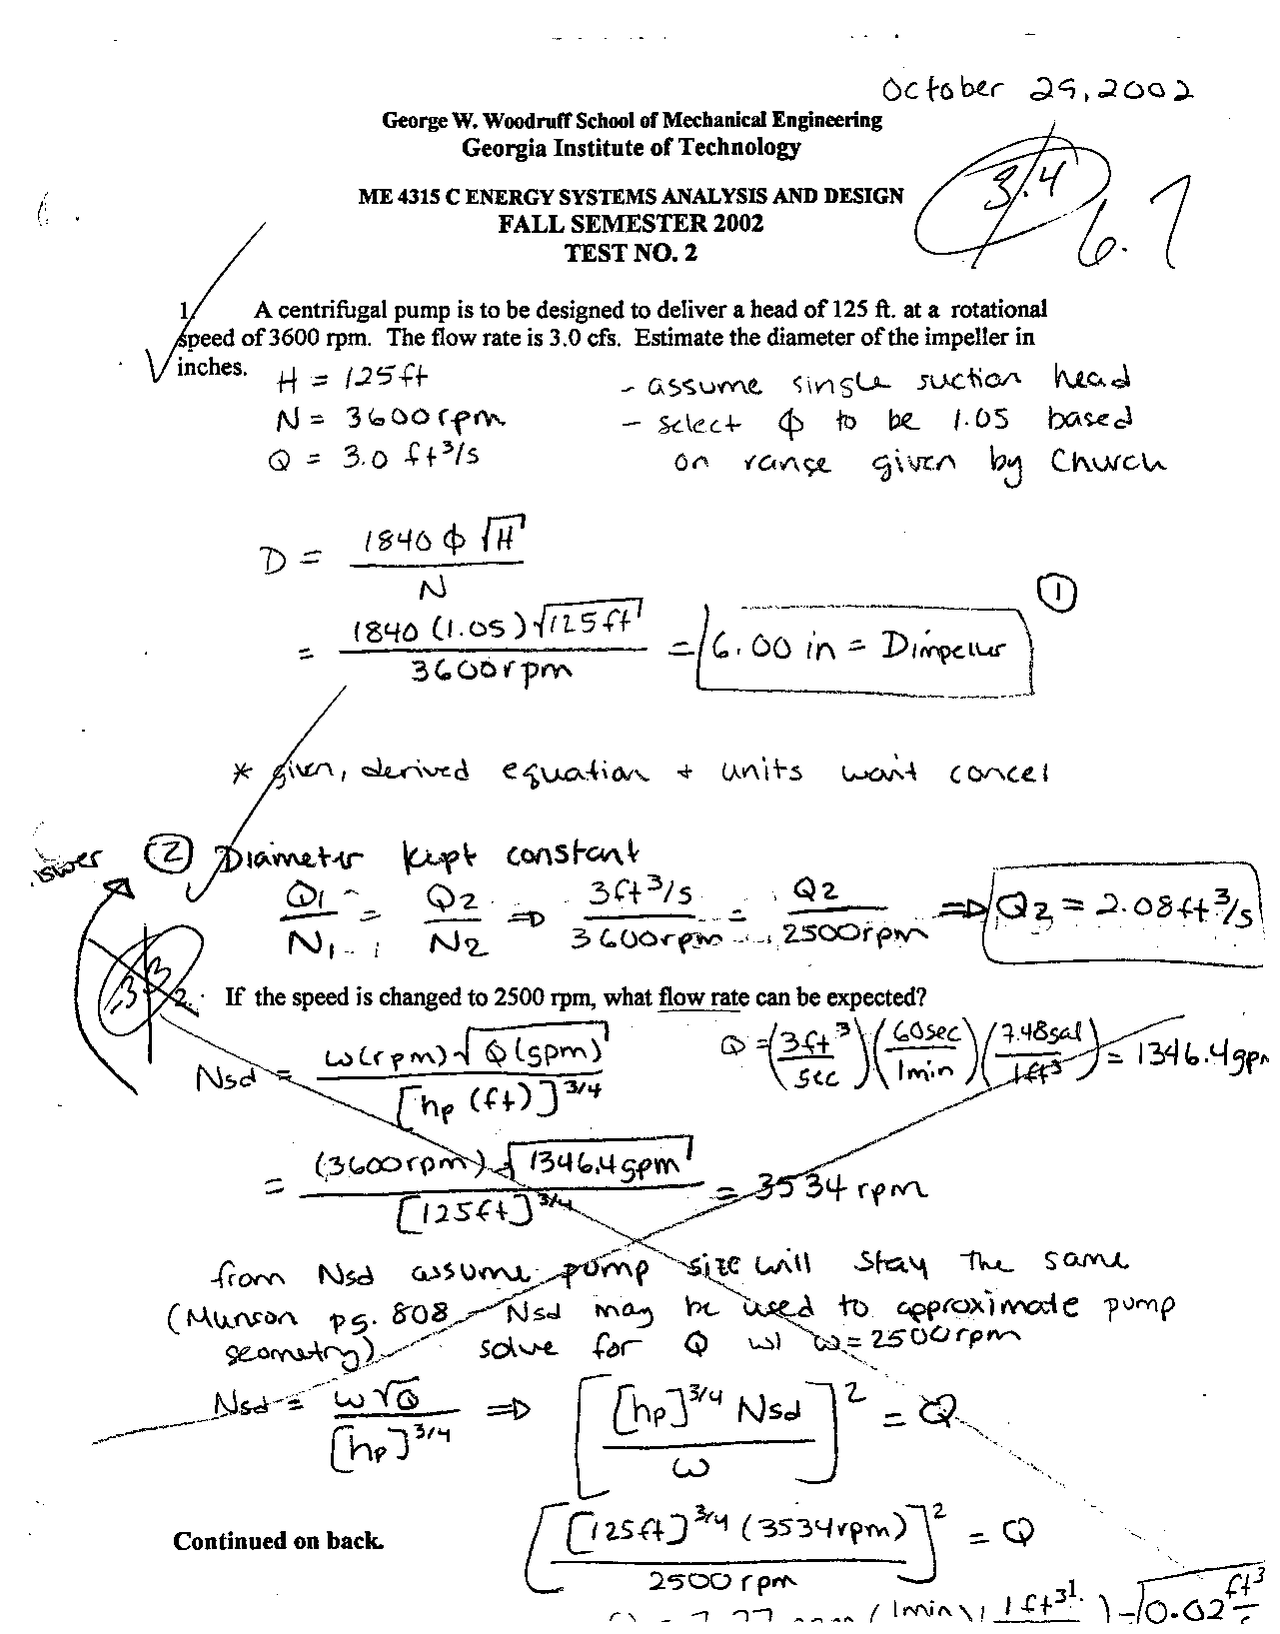 October 29, 2002
George W. Woodruff School of Mechanical Engineering
Georgia Institute of Technology
3.4
6.7
ME 4315 C ENERGY SYSTEMS ANALYSIS AND DESIGN
FALL SEMESTER 2002
TEST NO. 2
1. A centrifugal pump is to be designed to deliver a head of 125 ft. at a rotational
speed of 3600 rpm. The flow rate is 3.0 cfs. Estimate the diameter of the impeller in
inches.
H = 125ft - assume single suction head
N = 3600rpm - select ϕ to be 1.05 based
Q = 3.0 ft³/s on range given by Church
D = 1840 ϕ √H / N
= 1840 (1.05) √125ft / 3600rpm = 6.00 in = Dimpeller ①
* given, derived equation + units won't cancel
② Diameter kept constant
Q1/N1 = Q2/N2 ⇒ 3ft³/s / 3600rpm = Q2 / 2500rpm ⇒ Q2 = 2.08ft³/s
2. If the speed is changed to 2500 rpm, what flow rate can be expected?
Nsd = ω(rpm) √Q(gpm) / [hp (ft)]^3/4 Q = (3ft³/sec)(60sec/1min)(7.48gal/1ft³) = 1346.4gpm
= (3600rpm) √1346.4gpm / [125ft]^3/4 = 3534 rpm
from Nsd assume pump size will stay the same
(Munson pg. 808 - Nsd may be used to approximate pump
geometry) solve for Q w/ ω = 2500rpm
Nsd = ω√Q / [hp]^3/4 ⇒ [[hp]^3/4 Nsd / ω]² = Q
Continued on back. [[125ft]^3/4 (3534rpm) / 2500rpm]² = Q
(1min)(1ft³
0.02 ft³